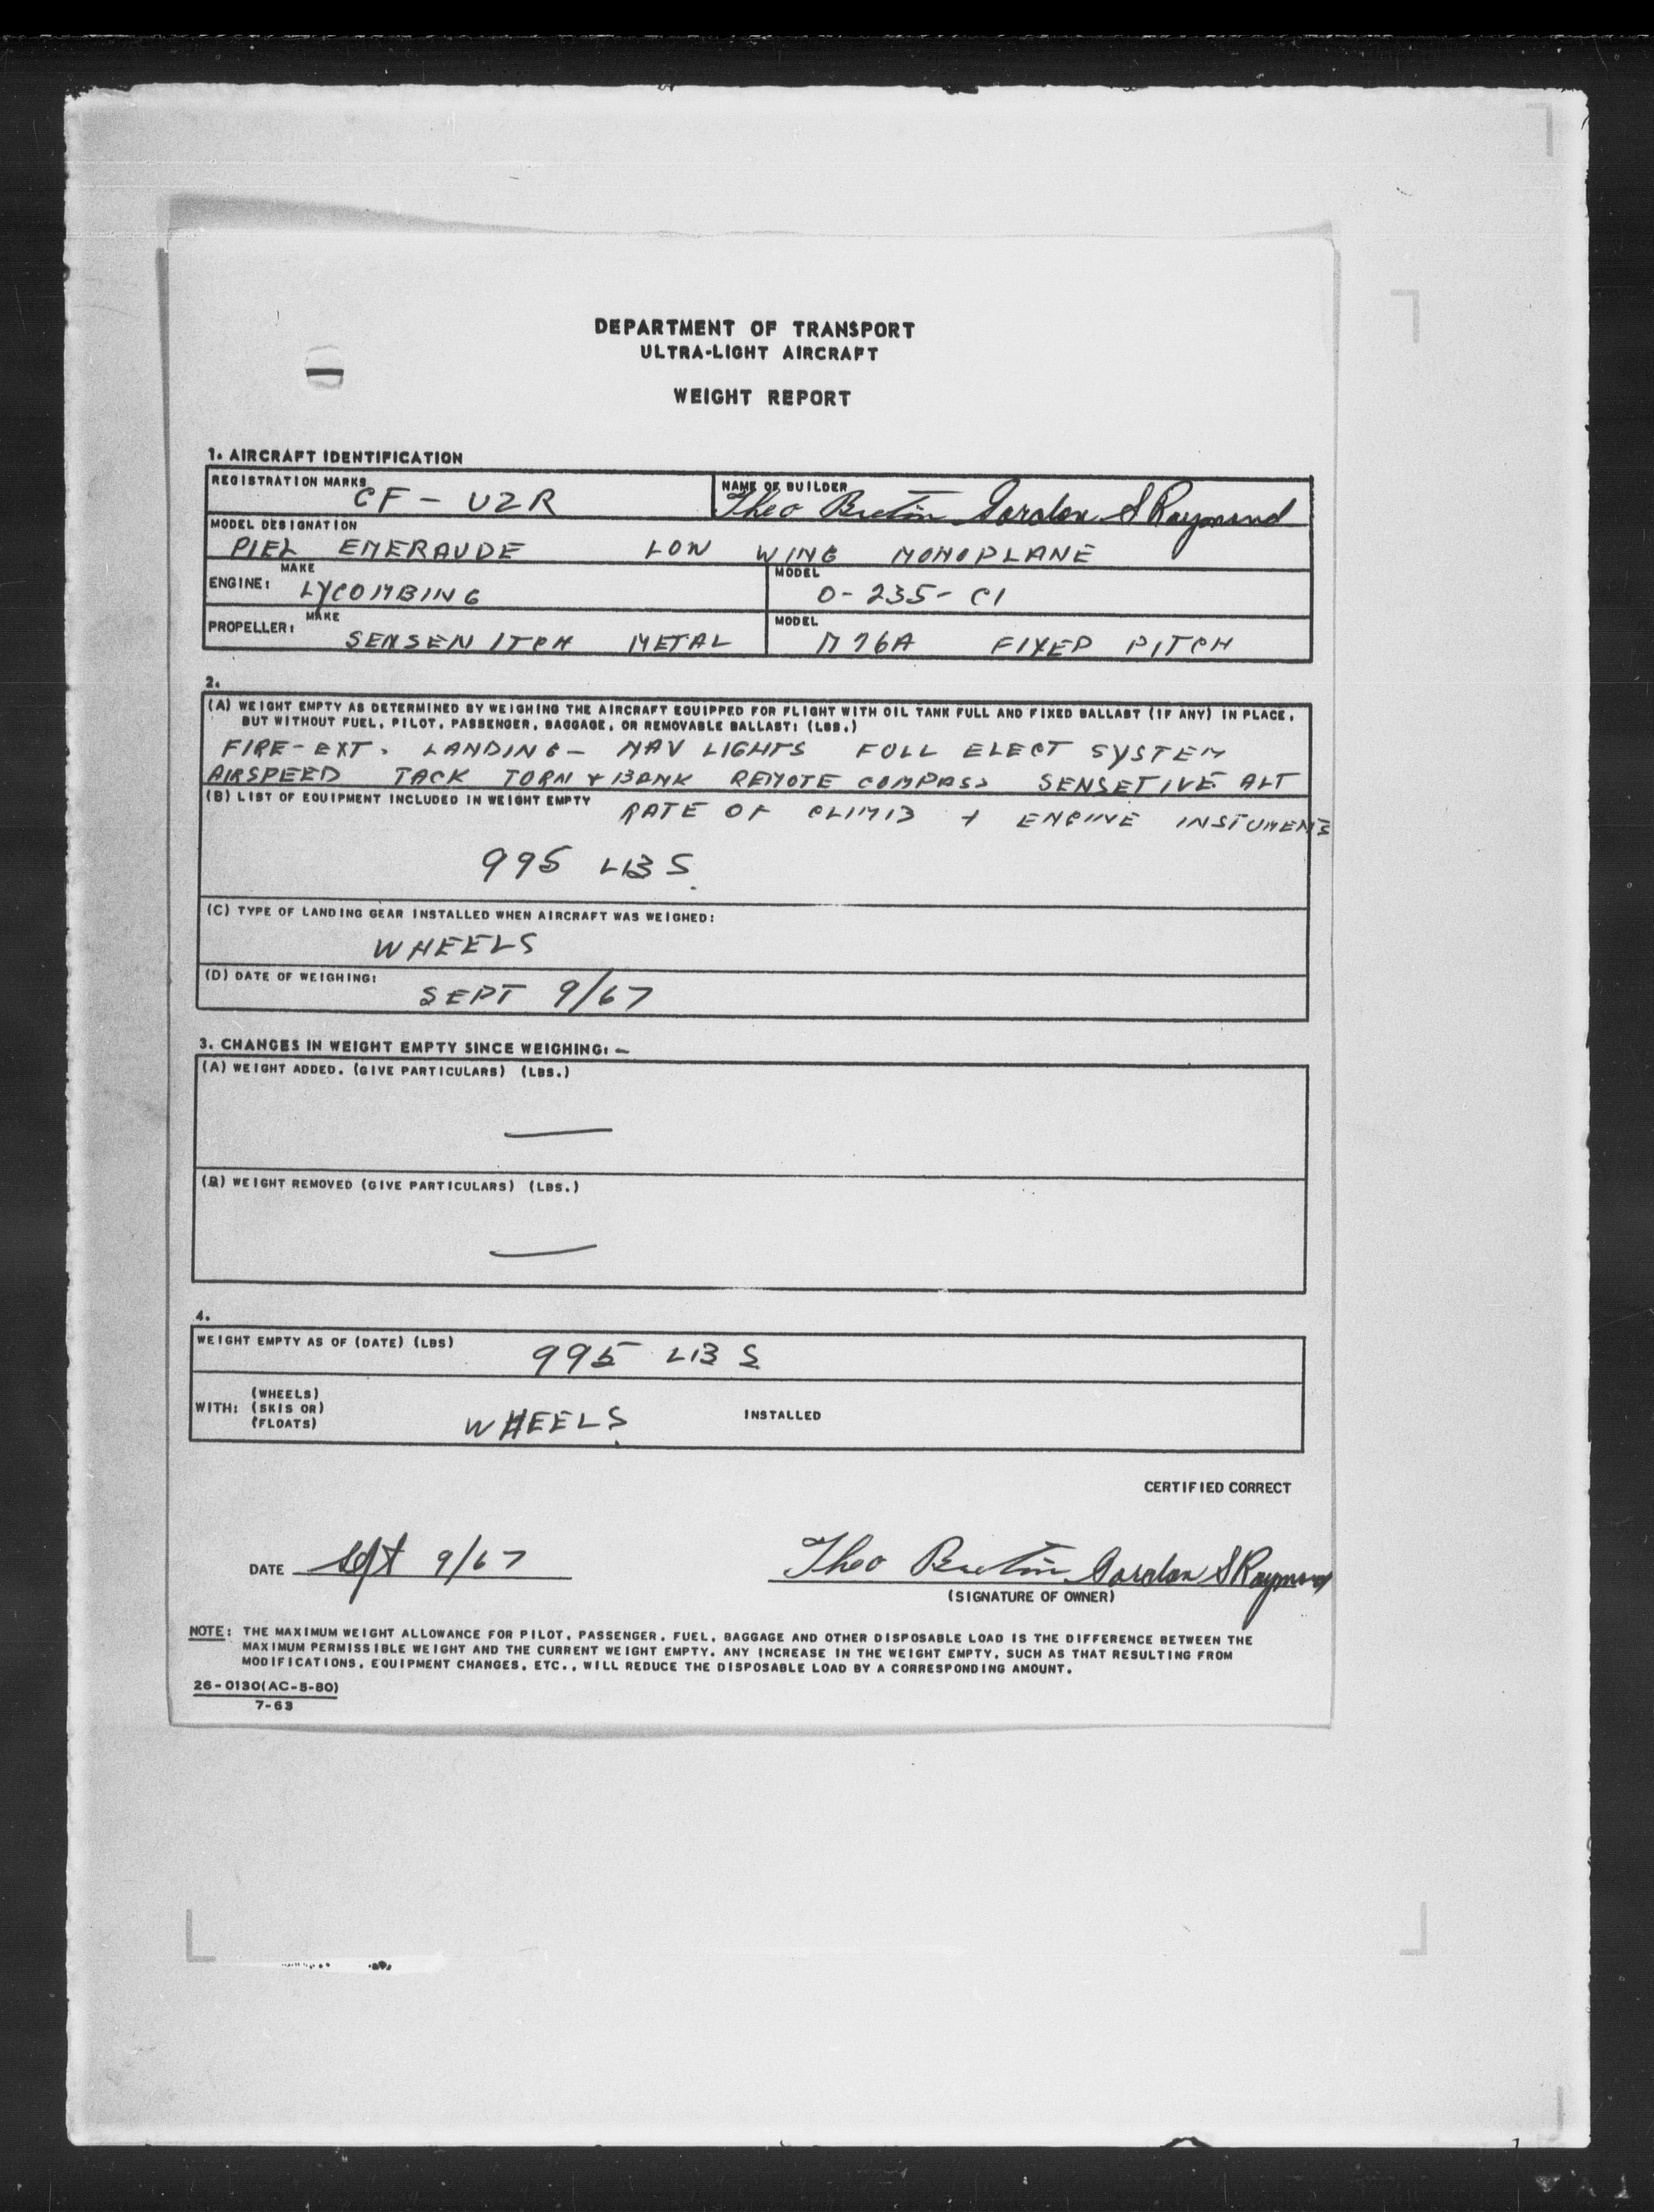 DEPARTMENT OF TRANSPORT
ULTRA-LIGHT AIRCRAFT
WEIGHT REPORT
1. AIRCRAFT IDENTIFICATION
REGISTRATION MARKS CF - UZR NAME OF BUILDER Theo Breton Gordon S Raymond
MODEL DESIGNATION
PIEL EMERAUDE LOW WING MONOPLANE
ENGINE: MAKE LYCOMBING MODEL O-235-C1
PROPELLER: MAKE SENSEN ITCH METAL MODEL M76A FIXED PITCH
2.
(A) WEIGHT EMPTY AS DETERMINED BY WEIGHING THE AIRCRAFT EQUIPPED FOR FLIGHT WITH OIL TANK FULL AND FIXED BALLAST (IF ANY) IN PLACE,
BUT WITHOUT FUEL, PILOT, PASSENGER, BAGGAGE, OR REMOVABLE BALLAST: (LBS.)
FIRE-EXT. LANDING - NAV LIGHTS FULL ELECT SYSTEM
AIRSPEED TACK TORN + BANK REMOTE COMPASS SENSETIVE ALT
(B) LIST OF EQUIPMENT INCLUDED IN WEIGHT EMPTY RATE OF CLIMB + ENGINE INSTUMENTS
995 LBS.
(C) TYPE OF LANDING GEAR INSTALLED WHEN AIRCRAFT WAS WEIGHED:
WHEELS
(D) DATE OF WEIGHING:
SEPT 9/67
3. CHANGES IN WEIGHT EMPTY SINCE WEIGHING: —
(A) WEIGHT ADDED. (GIVE PARTICULARS) (LBS.)
—
(B) WEIGHT REMOVED (GIVE PARTICULARS) (LBS.)
—
4.
WEIGHT EMPTY AS OF (DATE) (LBS) 995 LBS
WITH: (WHEELS) (SKIS OR) (FLOATS) WHEELS. INSTALLED
CERTIFIED CORRECT
DATE Sept 9/67 Theo Breton Gordon S Raymond
(SIGNATURE OF OWNER)
NOTE: THE MAXIMUM WEIGHT ALLOWANCE FOR PILOT, PASSENGER, FUEL, BAGGAGE AND OTHER DISPOSABLE LOAD IS THE DIFFERENCE BETWEEN THE
MAXIMUM PERMISSIBLE WEIGHT AND THE CURRENT WEIGHT EMPTY. ANY INCREASE IN THE WEIGHT EMPTY, SUCH AS THAT RESULTING FROM
MODIFICATIONS, EQUIPMENT CHANGES, ETC., WILL REDUCE THE DISPOSABLE LOAD BY A CORRESPONDING AMOUNT.
26-0130(AC-5-80)
7-63